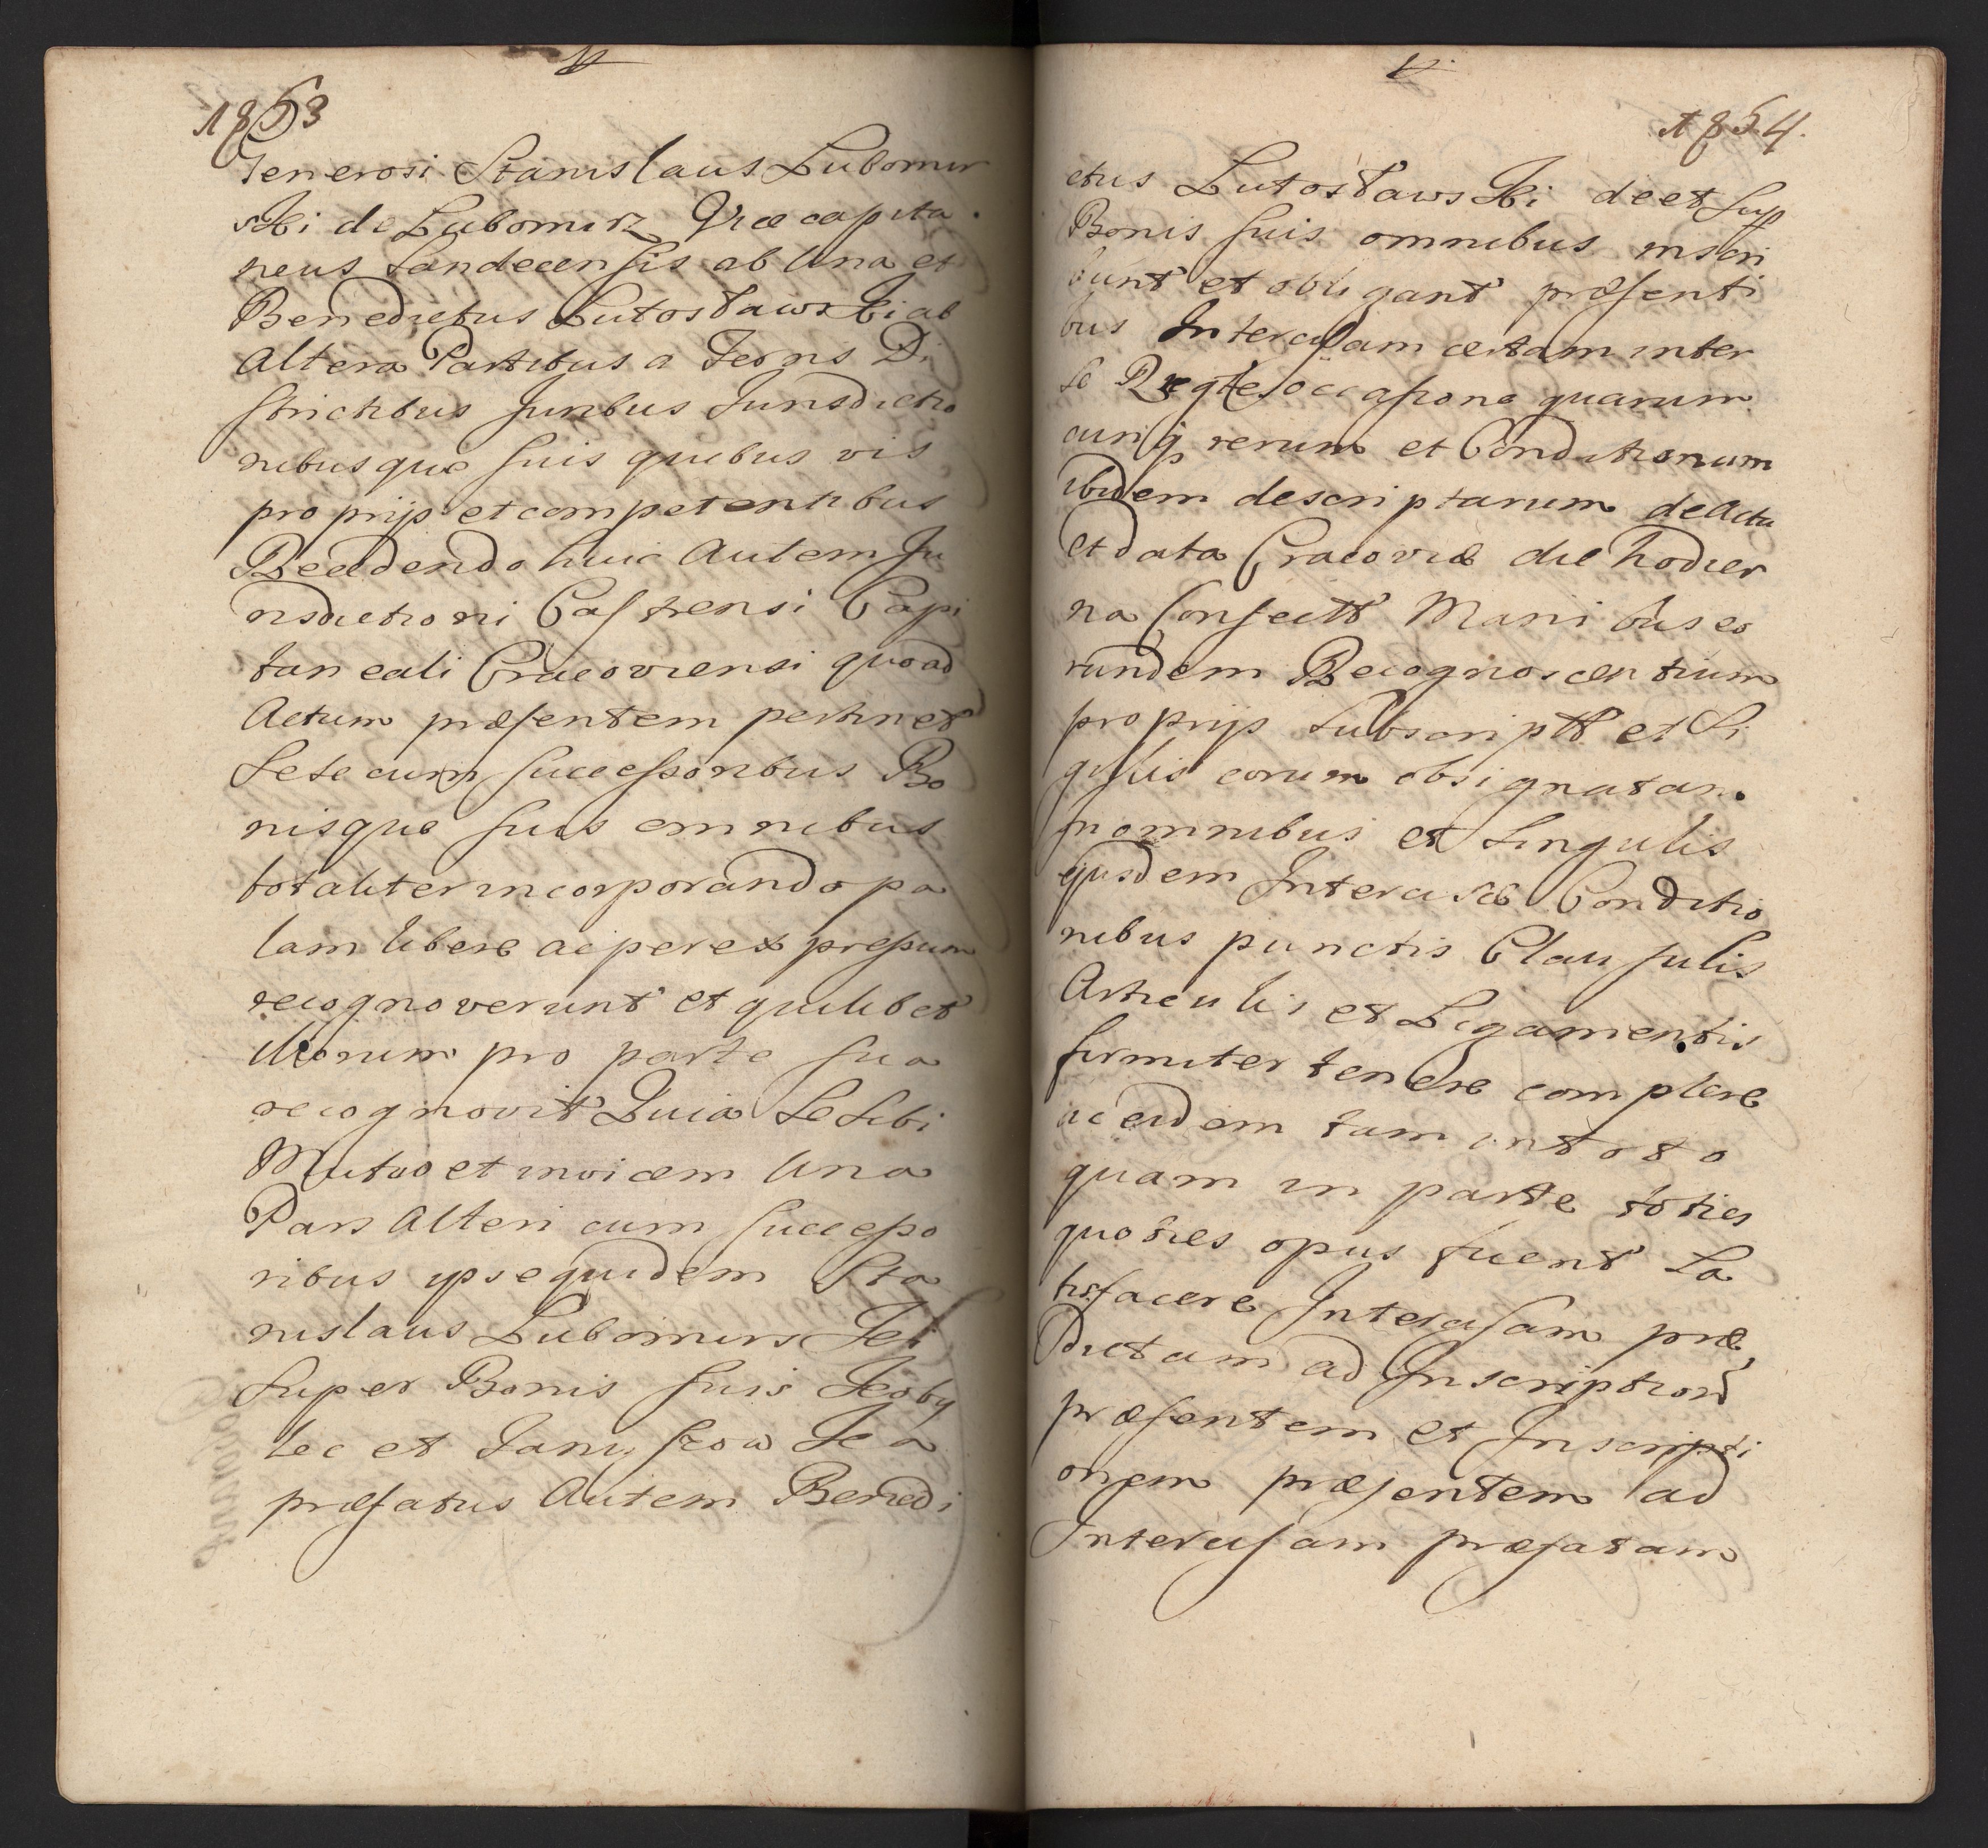 1853
Generosi Stanislaus Lubomir
ski de Lubomirz Vice capita
neus Sandecensis ab Una et
Benedictus Lutosławski ab
Altera Partibus a Terris Di
strictibus Juribus Jurisdictio
nibusque suis quibus vis
proprijs et competentibus
Recedendo huic Autem Ju
risdictioni Castrensi Capi
taneali Cracoviensi quo ad
Actum præsentem pertinet
Sese cum successoribus Bo
nisque suis omnibus
totaliter incorporando pa
lam libere ac per expressum
recognoverunt et quilibet
illorum pro parte sua
recognovit Quia Se Sibi
Mutuo et invicem Una
Pars Alteri cum successo
ribus ipse quidem Sta
nislaus Lubomirski
Super Bonis suis
et
præfatus Autem Benedi
1854.
ctus Lutosławski de et sup
Bonis suis omnibus inscri
bunt et obligant præsenti
bus Intercisam certam inter
se occasione quarum
cunq rerum et Conditionum
ibidem descriptarum de Actu
et data Cracoviæ die hodier
na Confectt Manibus eo
rundem Recognoscentium
proprijs subscriptt et Si
gillis eorum obsignatam
in omnibus et Singulis
ejusdem Intercisæ Conditio
nibus punctis Clausulis
Articulis et Ligamentis
firmiter tenere complere
ac eidem tam in toto
quam in parte toties
quoties opus fuerit Sa
tisfacere Intercisam præ
dictam ad Inscription
præsentem et Inscripti
onem præsentem ad
Intercisam præfatam